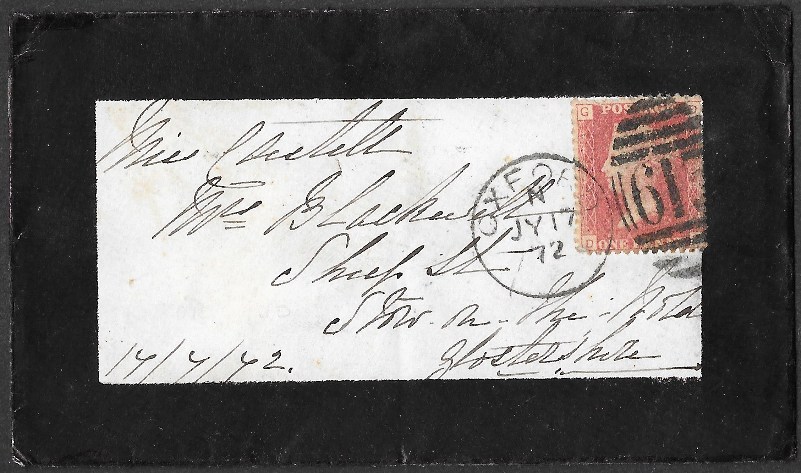 G
POSTAGE
Miss Castell
Mrs Blackwell
Sheep St
Stow-on-the-Wold
Glostershire
17/7/72.
OXFORD
N
JY 17
72
613
D ONE PENNY